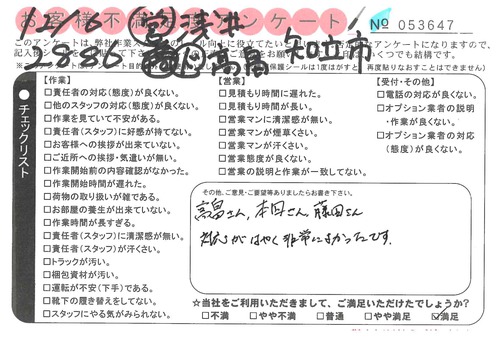 お客様不満アンケート
№ 053647
12/6
2886
知立市
【作業】
□責任者の対応(態度)が良くない。
□他のスタッフの対応(態度)が良くない。
□作業を見ていて不安がある。
□責任者(スタッフ)に好感が持てない。
□お客様への挨拶が出来ていない。
□ご近所への挨拶・気遣いが無い。
□作業開始前の内容確認がなかった。
□作業開始時間が遅れた。
□荷物の取り扱いが雑である。
□お部屋の養生が出来ていない。
□作業時間が長すぎる。
□責任者(スタッフ)に清潔感が無い。
□責任者(スタッフ)が汗くさい。
□トラックが汚い。
□梱包資材が汚い。
□運転が不安(下手)である。
□靴下の履き替えをしてない。
□スタッフにやる気がみられない。
【営業】
□見積もり時間に遅れた。
□見積もり時間が長い。
□営業マンに清潔感が無い。
□営業マンが煙草くさい。
□営業マンが汗くさい。
□営業態度が良くない。
□営業の説明と作業が一致してない。
【受付・その他】
□電話の対応が良くない。
□オプション業者の説明
・作業が良くない。
□オプション業者の対応
(態度)が良くない。
チェックリスト
その他、ご意見・ご要望等ありましたらお書き下さい。
高畠さん、本田さん、藤田さん
対応がはやく非常によかったです。
☆当社をご利用いただきまして、ご満足いただけたでしょうか?
□不満 □やや不満 □普通 □やや満足 ☑満足